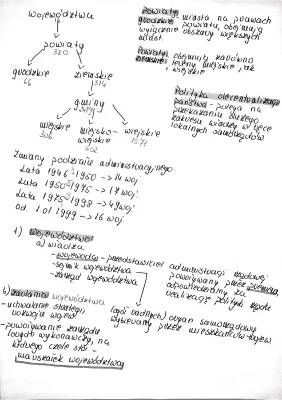 województwa
powiaty
380
grodzkie
66
ziemskie
314
gminy
2479
miejskie
306
miejsko-
wiejskie
602
wiejskie
1571
Powiaty
grodzkie miasta na prawach
powiatu, obejmują
wyłącznie obszary większych
miast
Powiaty
ziemskie obejmują zarówno
tereny miejskie jak
i wiejskie
Polityka decentralizacji
państwa - polega na
przekazaniu dużego
zakresu władzy w ręce
lokalnych samorządów
Zmiany podziału administracyjnego
Lata 1946-1950 -> 14 woj
Lata 1950-1975 -> 17 woj
Lata 1975-1998 -> 49 woj
Od 1.01.1999 -> 16 woj.
1) Województwo
a) władza
- wojewoda - przedstawiciel administracji rządowej
powoływany przez premiera,
odpowiedzialny za
realizację polityki rządu
- sejmik województwa
- zarząd województwa
(rada radnych) organ samorządowy
wybierany przez mieszkańców
b) zadania województwa
- uchwalanie strategii
rozwoju
- powoływanie zarządu
(organ wykonawczy, na
którego czele stoi
marszałek województwa)